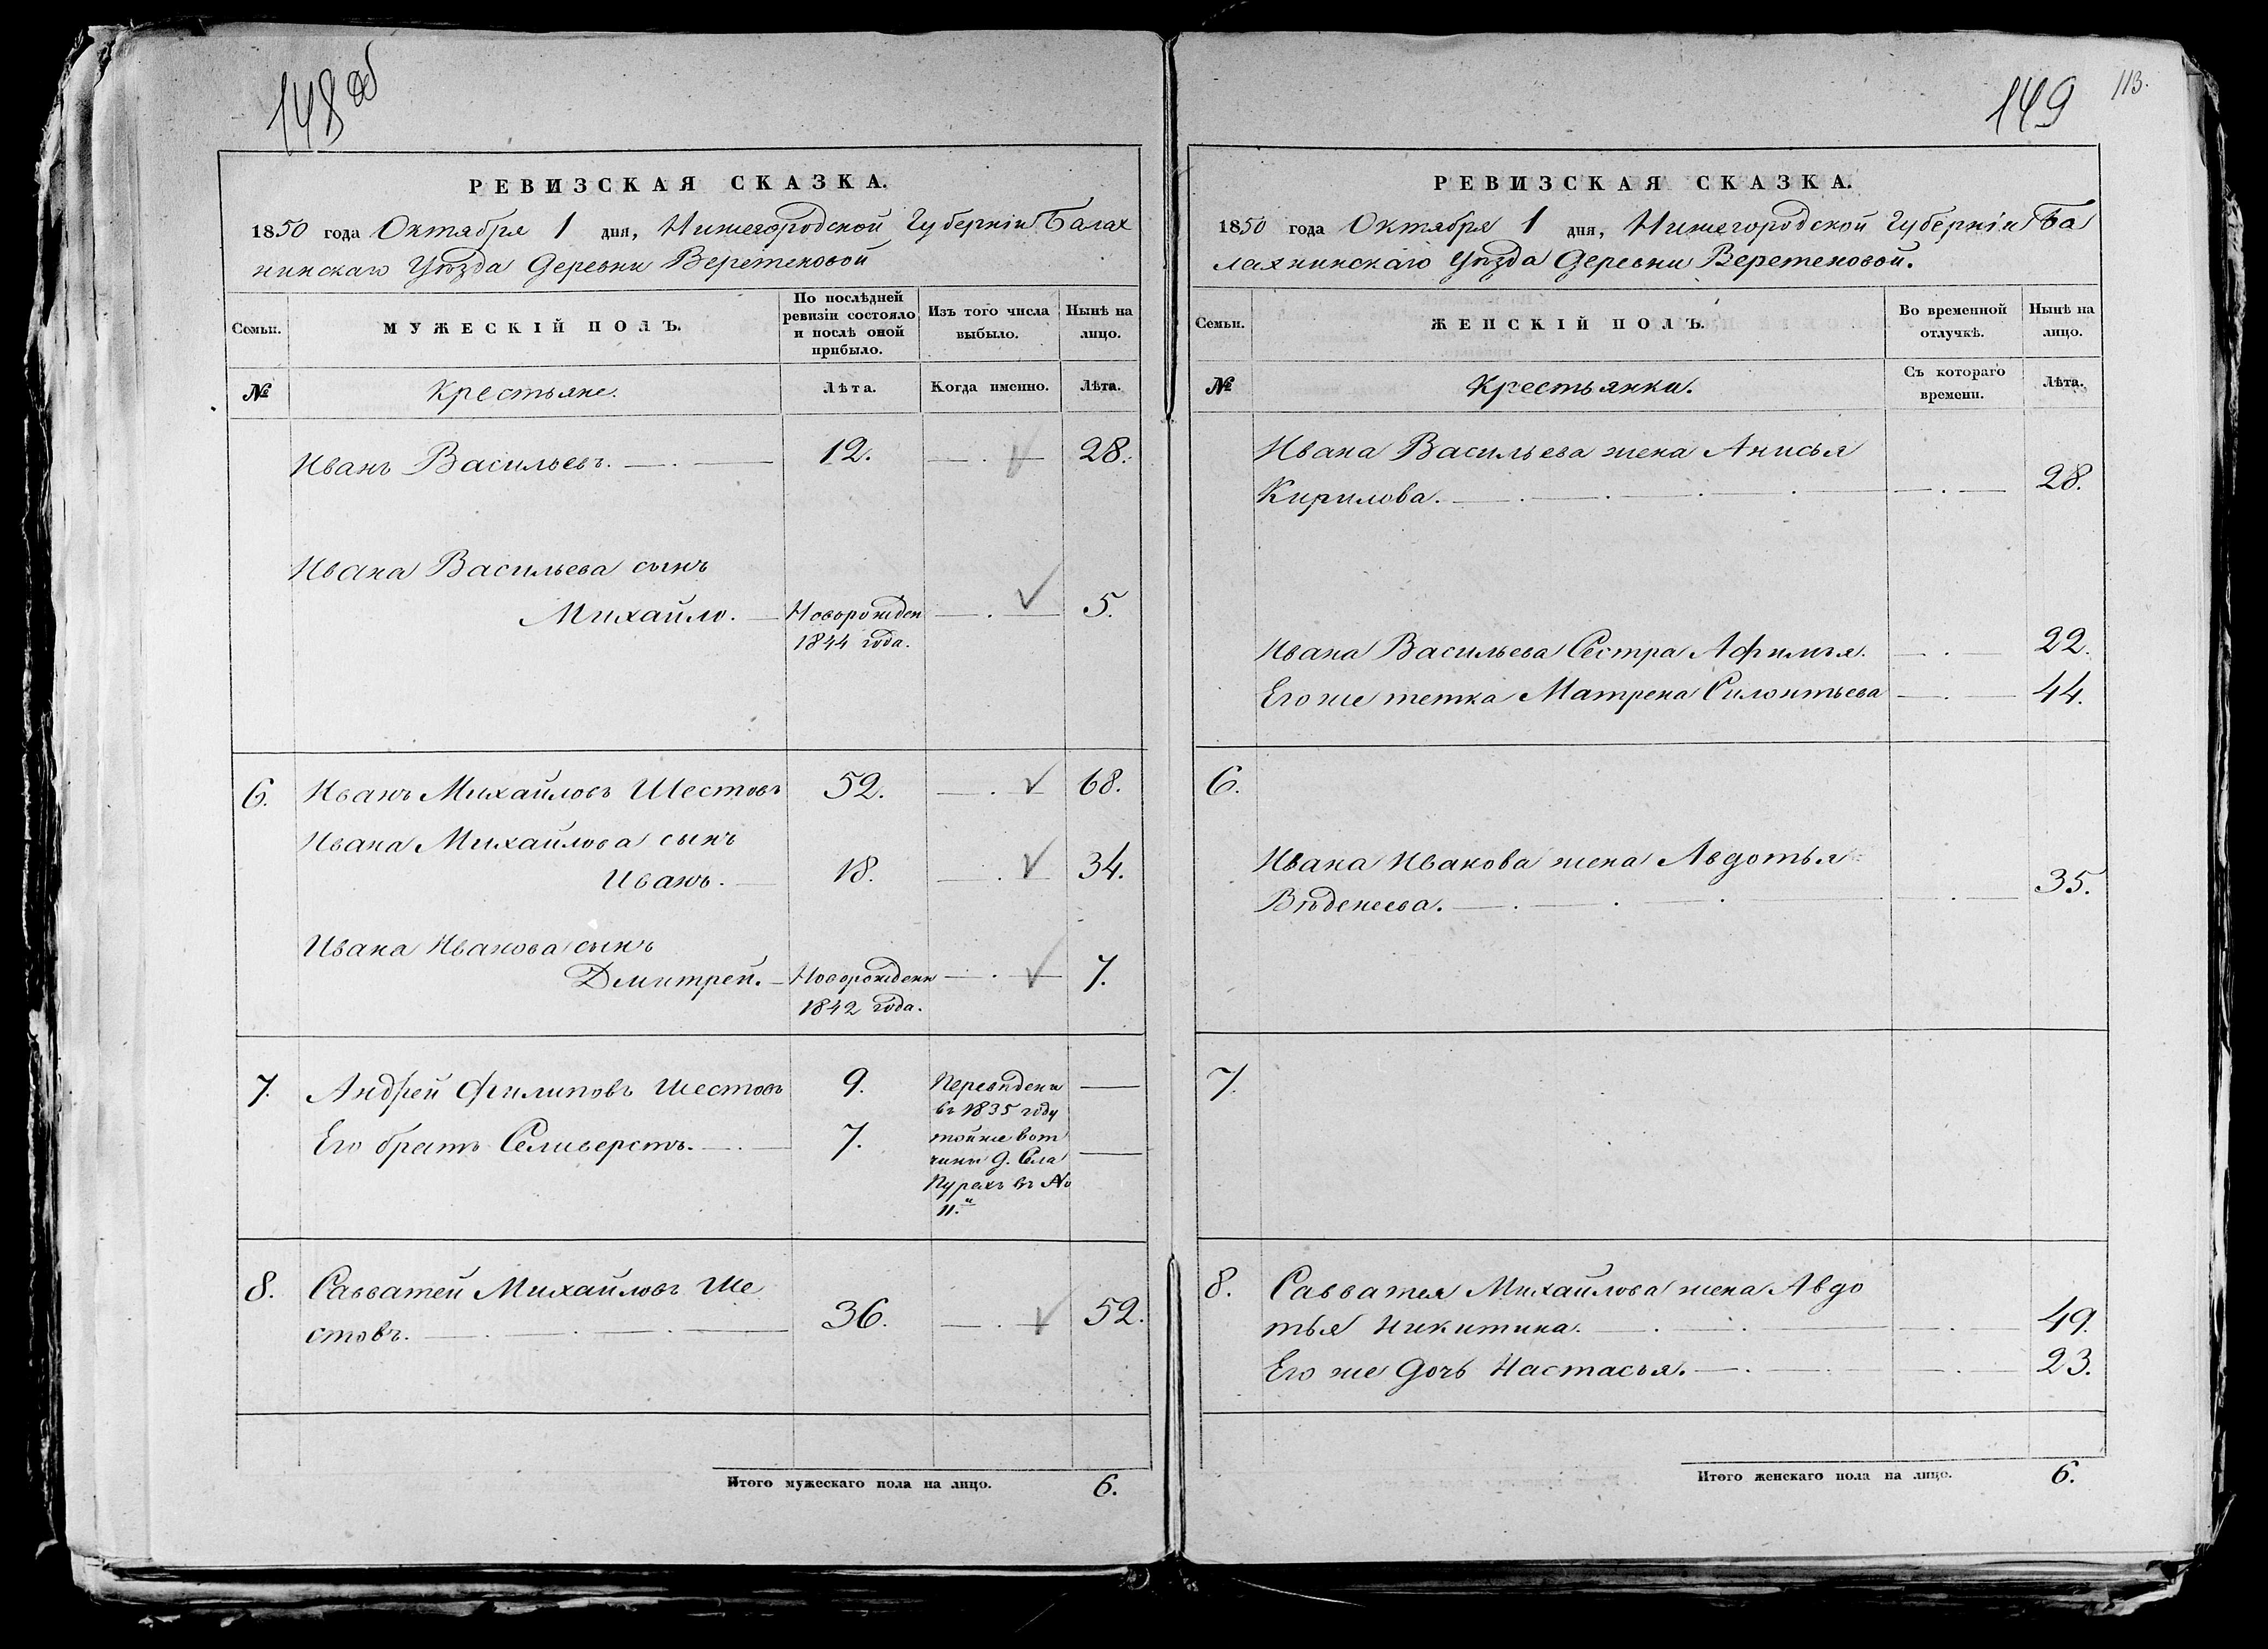 148 об
РЕВИЗСКАЯ СКАЗКА.
1850 года Октября 1 дня, Нижегородской Губерніи Балах
нинскаго Уѣзда Деревни Веретеновой
Семьи.
МУЖЕСКІЙ ПОЛЪ.
По послѣдней
ревизіи состояло
и послѣ оной
прибыло.
Изъ того числа
выбыло.
Нынѣ на
лицо.
№
Крестьяне.
Лѣта.
Когда именно.
Лѣта.
Иванъ Васильевъ. 12. 28.
Ивана Васильева сынъ
Михайло. Новорожден 5.
1844 года.
6. Иванъ Михайловъ Шестовъ 52. 68.
Ивана Михайлова сынъ
Иванъ. 18. 34.
Ивана Иванова сынъ
Дмитрей. Новорожденн 7.
1842 года.
7. Андрей Филиповъ Шестовъ 9. Переведены
въ 1835 году
Его братъ Селиверстъ. 7. тойже вот
чины д. Села
Пурехъ въ №
11.й
8. Савватей Михайловъ Ше
стовъ. 36. 52.
Итого мужескаго пола на лицо. 6.
149
113.
РЕВИЗСКАЯ СКАЗКА.
1850 года Октября 1 дня, Нижегородской Губерніи Ба
лахнинскаго Уѣзда Деревни Веретеновой.
Семьи.
ЖЕНСКІЙ ПОЛЪ.
Во временной
отлучкѣ.
Нынѣ на
лицо.
№
Крестьянки.
Съ котораго
времени.
Лѣта.
Ивана Васильева жена Анисья
Кирилова. 28.
Ивана Васильева Сестра Афимья. 22.
Его же тетка Матрена Силонтьева 44.
6.
Ивана Иванова жена Авдотья
Вѣденеева. 35.
7.
8. Савватея Михайлова жена Авдо
тья Никитина. 49.
Его же дочь Настасья. 23.
Итого женскаго пола на лицо. 6.